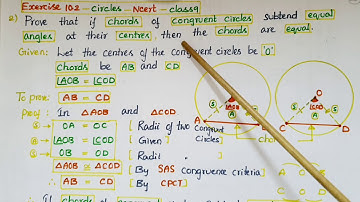 Exercise 10.2 - Circles - Ncert - class9
2) Prove that if chords of congruent circles subtend equal
angles at their centres, then the chords are equal.
Given: Let the centres of the congruent circles be 'O'
chords be AB and CD
∠AOB = ∠COD
To prove: AB = CD
Proof: In △AOB and △COD
S → OA = OC [Radii of two congruent
A → ∠AOB = ∠COD [Given] Circles
S → OB = OD [Radii "
△AOB ≅ △COD [By SAS congruence criteria]
∴ AB = CD [By CPCT]
O
S S
∠AOB
A
A B
O
S S
∠COD
A
C D
If chords of congruent circles